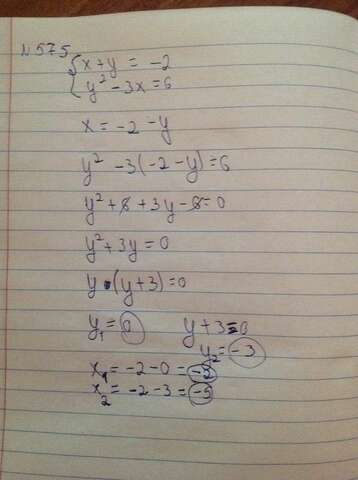 N 575
{ x + y = -2
y² - 3x = 6
x = -2 - y
y² - 3(-2 - y) = 6
y² + 6 + 3y - 6 = 0
y² + 3y = 0
y · (y + 3) = 0
y₁ = 0 y + 3 = 0
y₂ = -3
x₁ = -2 - 0 = -2
x₂ = -2 - 3 = -5